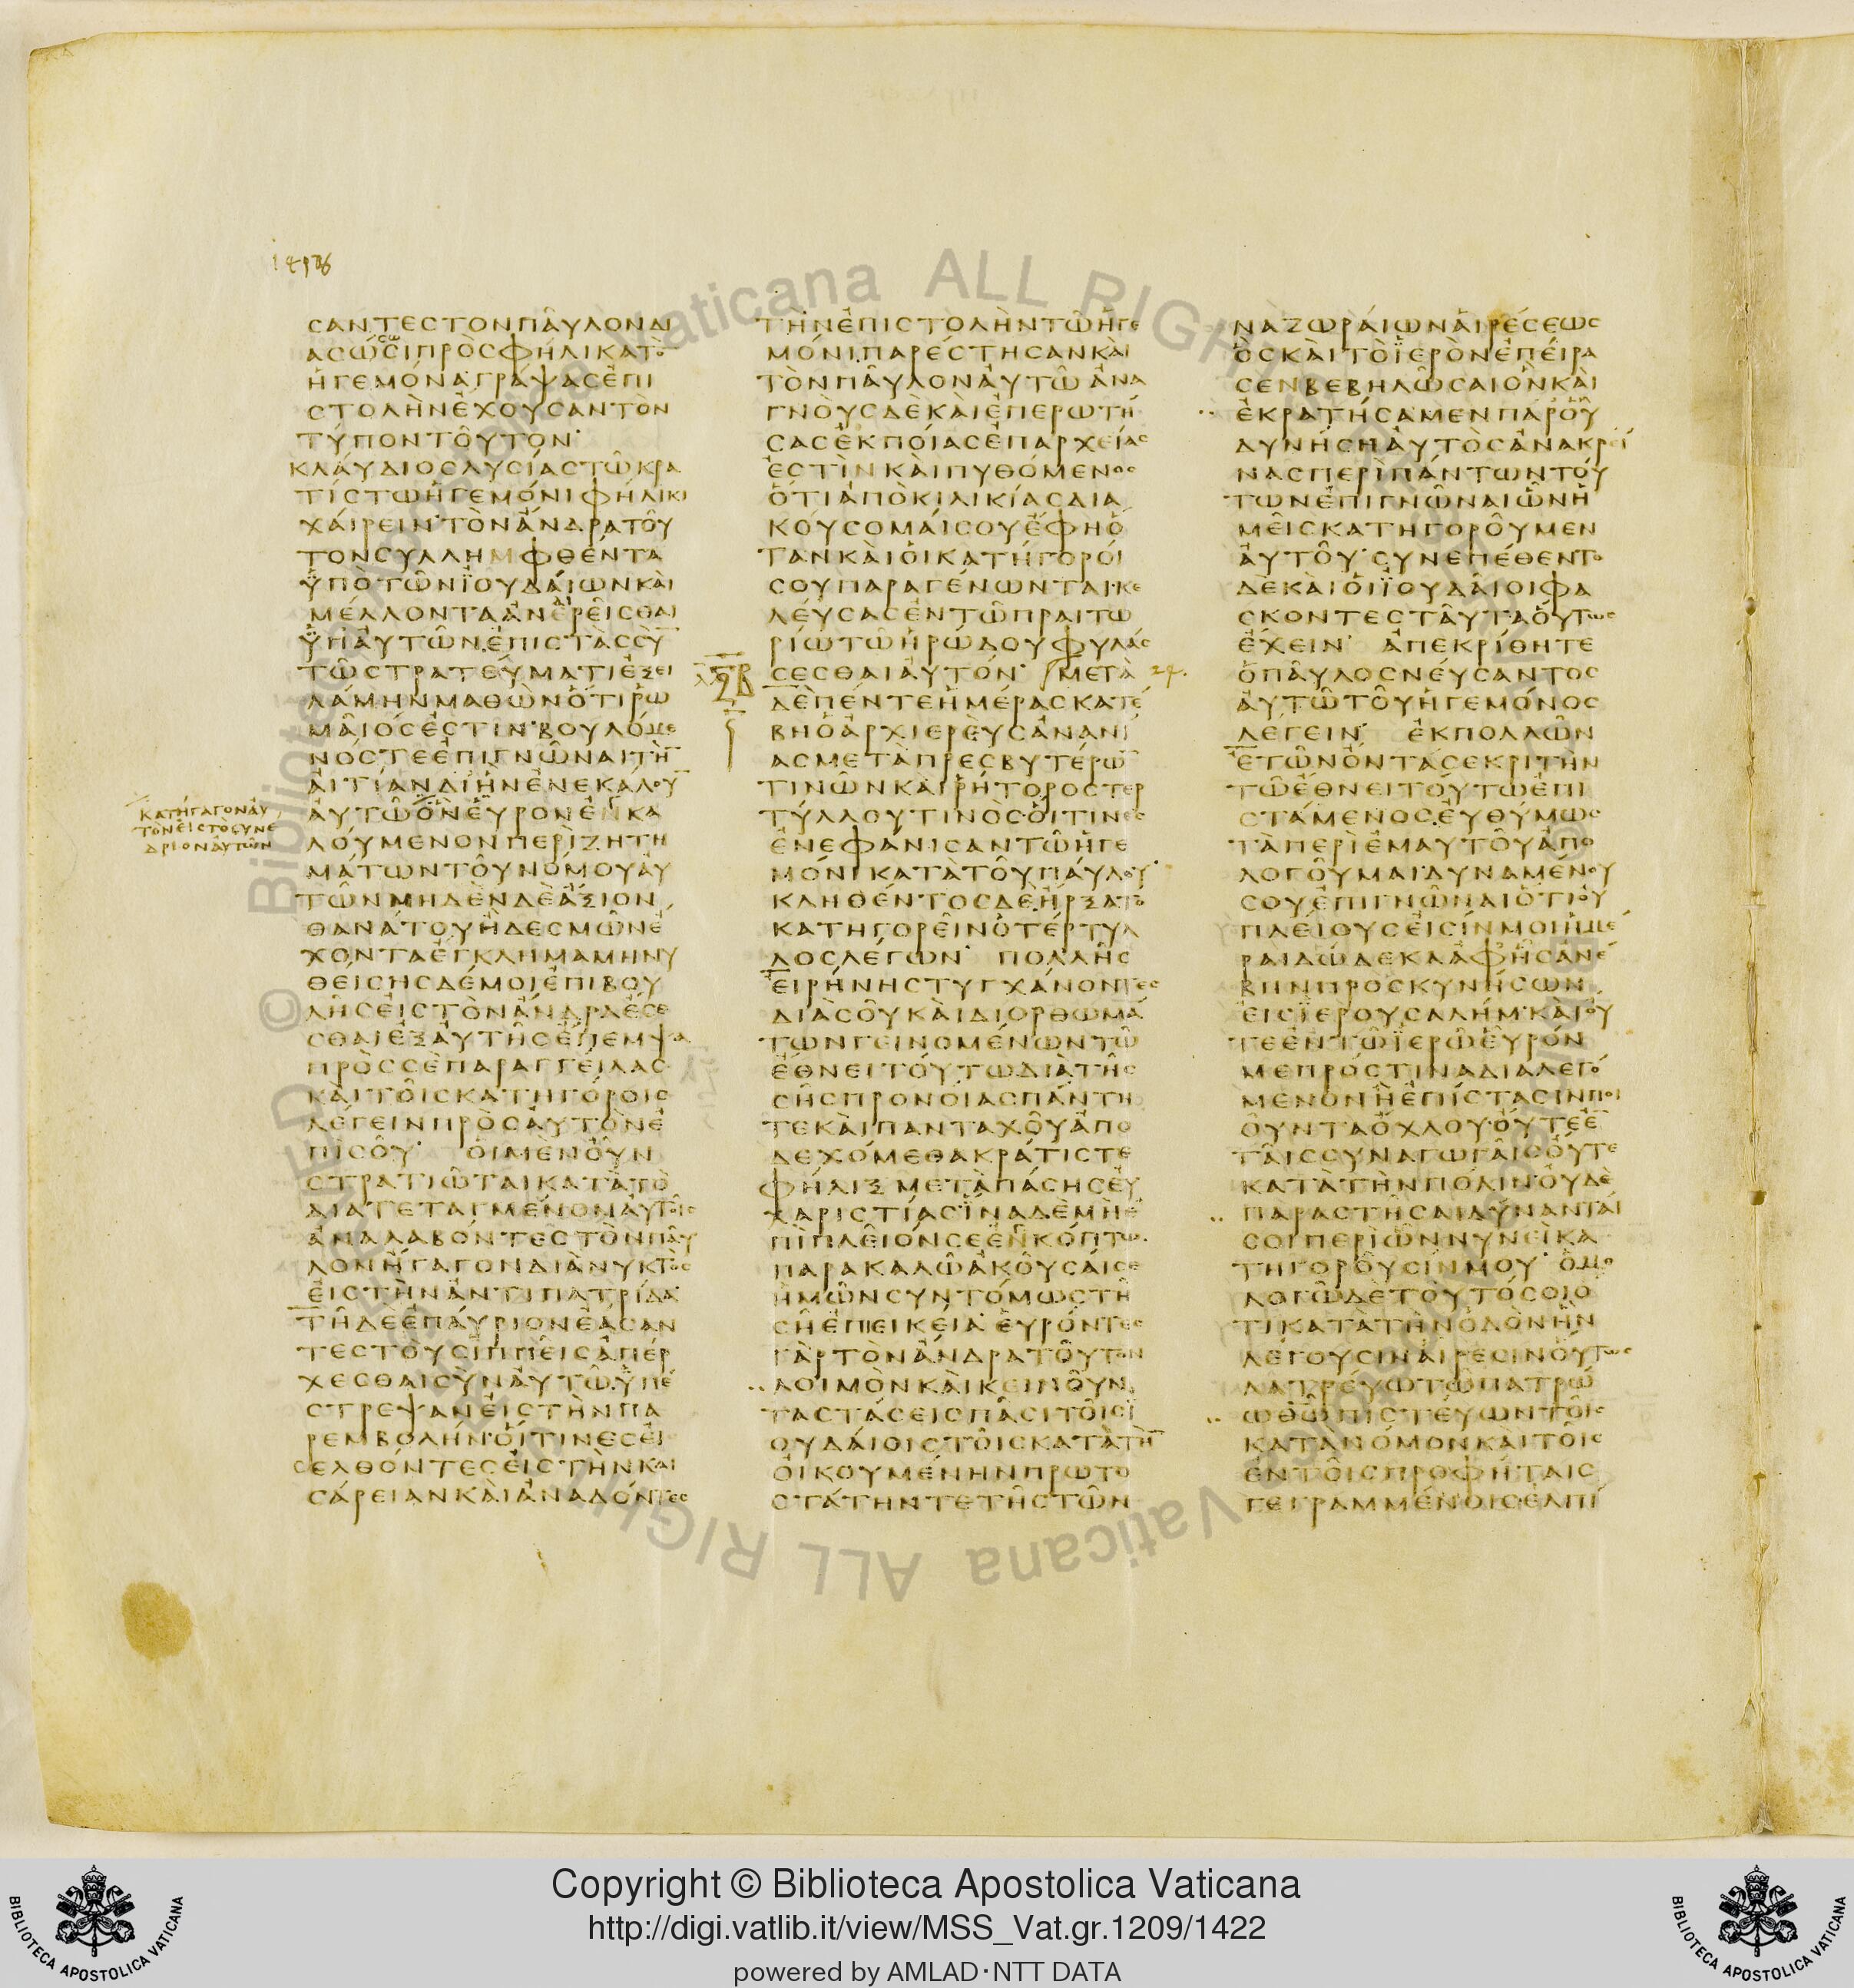 ϹΑΝΤΕϹΤΟΝΠΑΥΛΟΝΔΙ
ΑϹΩϹΙΠΡΟϹΦΗΛΙΚΑΤΟ
ΗΓΕΜΟΝΑΓΡΑΨΑϹΕΠΙ
ϹΤΟΛΗΝΕΧΟΥϹΑΝΤΟΝ
ΤΥΠΟΝΤΟΥΤΟΝ
ΚΛΑΥΔΙΟϹΛΥϹΙΑϹΤΩΚΡΑ
ΤΙϹΤΩΗΓΕΜΟΝΙΦΗΛΙΚΙ
ΧΑΙΡΕΙΝΤΟΝΑΝΔΡΑΤΟΥ
ΤΟΝϹΥΛΛΗΜΦΘΕΝΤΑ
ΫΠΟΤΩΝΪΟΥΔΑΙΩΝΚΑΙ
ΜΕΛΛΟΝΤΑΑΝΕΡΕΙϹΘΑΙ
ΫΠΑΥΤΩΝΕΠΙϹΤΑϹϹΥ
ΤΩϹΤΡΑΤΕΥΜΑΤΙΕΞΕΙ
ΛΑΜΗΝΜΑΘΩΝΟΤΙΡΩ
ΜΑΙΟϹΕϹΤΙΝΒΟΥΛΟΜΕ
ΝΟϹΤΕΕΠΙΓΝΩΝΑΙΤΗ
ΑΙΤΙΑΝΔΙΗΝΕΝΕΚΑΛΟΥ
ΑΥΤΩΟΝΕΥΡΟΝΕΝΚΑ
ΚΑΤΗΓΑΓΟΝΑΥ
ΤΟΝΕΙϹΤΟϹΥΝΕ
ΔΡΙΟΝΑΥΤΩΝ
ΛΟΥΜΕΝΟΝΠΕΡΙΖΗΤΗ
ΜΑΤΩΝΤΟΥΝΟΜΟΥΑΥ
ΤΩΝΜΗΔΕΝΔΕΑΞΙΟΝ
ΘΑΝΑΤΟΥΗΔΕϹΜΩΝΕ
ΧΟΝΤΑΕΓΚΛΗΜΑΜΗΝΥ
ΘΕΙϹΗϹΔΕΜΟΙΕΠΙΒΟΥ
ΛΗϹΕΙϹΤΟΝΑΝΔΡΑΕϹΕ
ϹΘΑΙΕΞΑΥΤΗϹΕΠΕΜΨΑ
ΠΡΟϹϹΕΠΑΡΑΓΓΕΙΛΑϹ
ΚΑΙΤΟΙϹΚΑΤΗΓΟΡΟΙϹ
ΛΕΓΕΙΝΠΡΟϹΑΥΤΟΝΕ
ΠΙϹΟΥ ΟΙΜΕΝΟΥΝ
ϹΤΡΑΤΙΩΤΑΙΚΑΤΑΤΟ
ΔΙΑΤΕΤΑΓΜΕΝΟΝΑΥΤΟΙϹ
ΑΝΑΛΑΒΟΝΤΕϹΤΟΝΠΑΥ
ΛΟΝΗΓΑΓΟΝΔΙΑΝΥΚΤΟϹ
ΕΙϹΤΗΝΑΝΤΙΠΑΤΡΙΔΑ
ΤΗΔΕΕΠΑΥΡΙΟΝΕΑϹΑΝ
ΤΕϹΤΟΥϹΙΠΠΕΙϹΑΠΕΡ
ΧΕϹΘΑΙϹΥΝΑΥΤΩΫΠΕ
ϹΤΡΕΨΑΝΕΙϹΤΗΝΠΑ
ΡΕΜΒΟΛΗΝΟΙΤΙΝΕϹΕΙ
ϹΕΛΘΟΝΤΕϹΕΙϹΤΗΝΚΑΙ
ϹΑΡΕΙΑΝΚΑΙΑΝΑΔΟΝΤΕϹ
ΤΗΝΕΠΙϹΤΟΛΗΝΤΩΗΓΕ
ΜΟΝΙΠΑΡΕϹΤΗϹΑΝΚΑΙ
ΤΟΝΠΑΥΛΟΝΑΥΤΩΑΝΑ
ΓΝΟΥϹΔΕΚΑΙΕΠΕΡΩΤΗ
ϹΑϹΕΚΠΟΙΑϹΕΠΑΡΧΕΙΑϹ
ΕϹΤΙΝΚΑΙΠΥΘΟΜΕΝΟϹ
ΟΤΙΑΠΟΚΙΛΙΚΙΑϹΔΙΑ
ΚΟΥϹΟΜΑΙϹΟΥΕΦΗΟ
ΤΑΝΚΑΙΟΙΚΑΤΗΓΟΡΟΙ
ϹΟΥΠΑΡΑΓΕΝΩΝΤΑΙΚΕ
ΛΕΥϹΑϹΕΝΤΩΠΡΑΙΤΩ
ΡΙΩΤΩΗΡΩΔΟΥΦΥΛΑϹ
ϹΕϹΘΑΙΑΥΤΟΝ ΜΕΤΑ
ΔΕΠΕΝΤΕΗΜΕΡΑϹΚΑΤΕ
ΒΗΟΑΡΧΙΕΡΕΥϹΑΝΑΝΙ
ΑϹΜΕΤΑΠΡΕϹΒΥΤΕΡΩ
ΤΙΝΩΝΚΑΙΡΗΤΟΡΟϹΤΕΡ
ΤΥΛΛΟΥΤΙΝΟϹΟΙΤΙΝΕϹ
ΕΝΕΦΑΝΙϹΑΝΤΩΗΓΕ
ΜΟΝΙΚΑΤΑΤΟΥΠΑΥΛΟΥ
ΚΛΗΘΕΝΤΟϹΔΕΗΡΞΑΤΟ
ΚΑΤΗΓΟΡΕΙΝΟΤΕΡΤΥΛ
ΛΟϹΛΕΓΩΝ ΠΟΛΛΗϹ
ΕΙΡΗΝΗϹΤΥΓΧΑΝΟΝΤΕϹ
ΔΙΑϹΟΥΚΑΙΔΙΟΡΘΩΜΑ
ΤΩΝΓΕΙΝΟΜΕΝΩΝΤΩ
ΕΘΝΕΙΤΟΥΤΩΔΙΑΤΗϹ
ϹΗϹΠΡΟΝΟΙΑϹΠΑΝΤΗ
ΤΕΚΑΙΠΑΝΤΑΧΟΥΑΠΟ
ΔΕΧΟΜΕΘΑΚΡΑΤΙϹΤΕ
ΦΗΛΙΞΜΕΤΑΠΑϹΗϹΕΥ
ΧΑΡΙϹΤΙΑϹΪΝΑΔΕΜΗΕ
ΠΙΠΛΕΙΟΝϹΕΕΝΚΟΠΤΩ
ΠΑΡΑΚΑΛΩΑΚΟΥϹΑΙϹΕ
ΗΜΩΝϹΥΝΤΟΜΩϹΤΗ
ϹΗΕΠΙΕΙΚΕΙΑΕΥΡΟΝΤΕϹ
ΓΑΡΤΟΝΑΝΔΡΑΤΟΥΤΟΝ
ΛΟΙΜΟΝΚΑΙΚΕΙΝΟΥΝ
ΤΑϹΤΑϹΕΙϹΠΑϹΙΤΟΙϹΪ
ΟΥΔΑΙΟΙϹΤΟΙϹΚΑΤΑΤΗ
ΟΙΚΟΥΜΕΝΗΝΠΡΩΤΟ
ϹΤΑΤΗΝΤΕΤΗϹΤΩΝ
ΝΑΖΩΡΑΙΩΝΑΙΡΕϹΕΩϹ
ΟϹΚΑΙΤΟΪΕΡΟΝΕΠΕΙΡΑ
ϹΕΝΒΕΒΗΛΩϹΑΙΟΝΚΑΙ
ΕΚΡΑΤΗϹΑΜΕΝΠΑΡΟΥ
ΔΥΝΗϹΗΑΥΤΟϹΑΝΑΚΡΕΙ
ΝΑϹΠΕΡΙΠΑΝΤΩΝΤΟΥ
ΤΩΝΕΠΙΓΝΩΝΑΙΩΝΗ
ΜΕΙϹΚΑΤΗΓΟΡΟΥΜΕΝ
ΑΥΤΟΥϹΥΝΕΠΕΘΕΝΤΟ
ΔΕΚΑΙΟΙΪΟΥΔΑΙΟΙΦΑ
ϹΚΟΝΤΕϹΤΑΥΤΑΟΥΤΩϹ
ΕΧΕΙΝ ΑΠΕΚΡΙΘΗΤΕ
ΟΠΑΥΛΟϹΝΕΥϹΑΝΤΟϹ
ΑΥΤΩΤΟΥΗΓΕΜΟΝΟϹ
ΛΕΓΕΙΝ ΕΚΠΟΛΛΩΝ
ΕΤΩΝΟΝΤΑϹΕΚΡΙΤΗΝ
ΤΩΕΘΝΕΙΤΟΥΤΩΕΠΙ
ϹΤΑΜΕΝΟϹΕΥΘΥΜΩϹ
ΤΑΠΕΡΙΕΜΑΥΤΟΥΑΠΟ
ΛΟΓΟΥΜΑΙΔΥΝΑΜΕΝΟΥ
ϹΟΥΕΠΙΓΝΩΝΑΙΟΤΙΟΥ
ΠΛΕΙΟΥϹΕΙϹΙΝΜΟΙΗΜΕ
ΡΑΙΔΩΔΕΚΑΑΦΗϹΑΝΕ
ΒΗΝΠΡΟϹΚΥΝΗϹΩΝ
ΕΙϹΪΕΡΟΥϹΑΛΗΜΚΑΙΟΥ
ΤΕΕΝΤΩΪΕΡΩΕΥΡΟΝ
ΜΕΠΡΟϹΤΙΝΑΔΙΑΛΕΓΟ
ΜΕΝΟΝΗΕΠΙϹΤΑϹΙΝΠΟΙ
ΟΥΝΤΑΟΧΛΟΥΟΥΤΕΕ
ΤΑΙϹϹΥΝΑΓΩΓΑΙϹΟΥΤΕ
ΚΑΤΑΤΗΝΠΟΛΙΝΟΥΔΕ
ΠΑΡΑϹΤΗϹΑΙΔΥΝΑΝΤΑΙ
ϹΟΙΠΕΡΙΩΝΝΥΝΕΙΚΑ
ΤΗΓΟΡΟΥϹΙΝΜΟΥ ΟΜΟ
ΛΟΓΩΔΕΤΟΥΤΟϹΟΙΟ
ΤΙΚΑΤΑΤΗΝΟΔΟΝΗΝ
ΛΕΓΟΥϹΙΝΑΙΡΕϹΙΝΟΥΤΩϹ
ΛΑΤΡΕΥΩΤΩΠΑΤΡΩ
ΩΘΩΠΙϹΤΕΥΩΝΤΟΙϹ
ΚΑΤΑΝΟΜΟΝΚΑΙΤΟΙϹ
ΕΝΤΟΙϹΠΡΟΦΗΤΑΙϹ
ΓΕΓΡΑΜΜΕΝΟΙϹΕΛΠΙ
Copyright © Biblioteca Apostolica Vaticana
http://digi.vatlib.it/view/MSS_Vat.gr.1209/1422
powered by AMLAD·NTT DATA
BIBLIOTECA APOSTOLICA VATICANA
BIBLIOTECA APOSTOLICA VATICANA